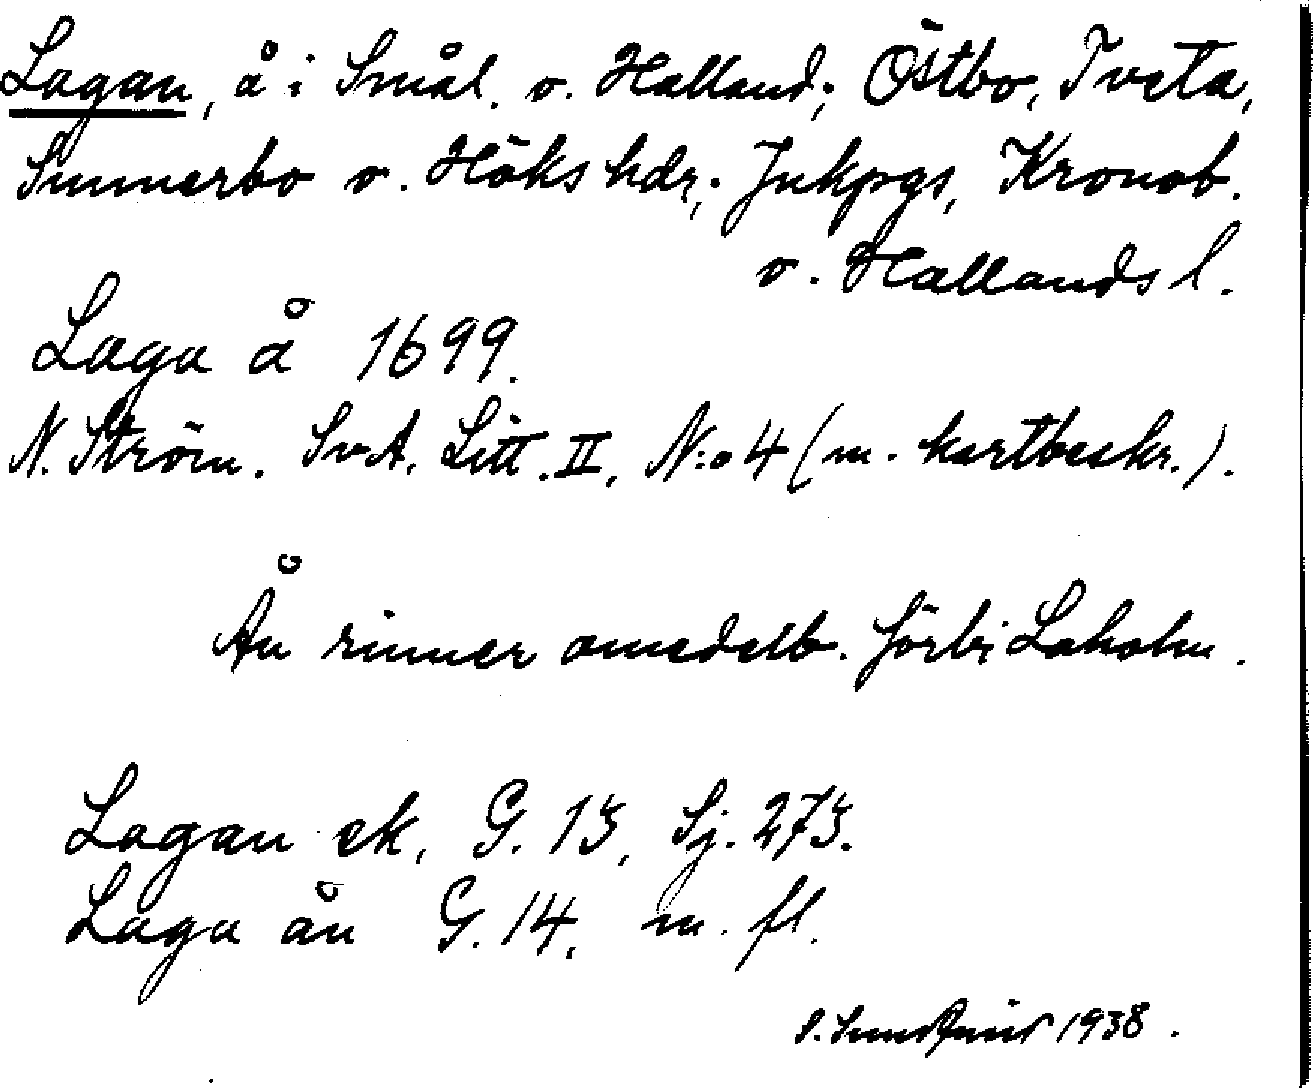 Lagan, å i Smål. o. Halland; Östbo, Tveta,
Sunnerbo o. Höks hdr; Jnkpgs, Kronob.
o. Hallands l.
Laga å 1699.
N. Ström. SvA. Litt. II, N:o 4 (m. kartbeskr.).
Ån rinner omedelb. förbi Laholm.
Lagan ek, G. 13, Sj. 273.
Laga ån G. 14, m. fl.
1938.